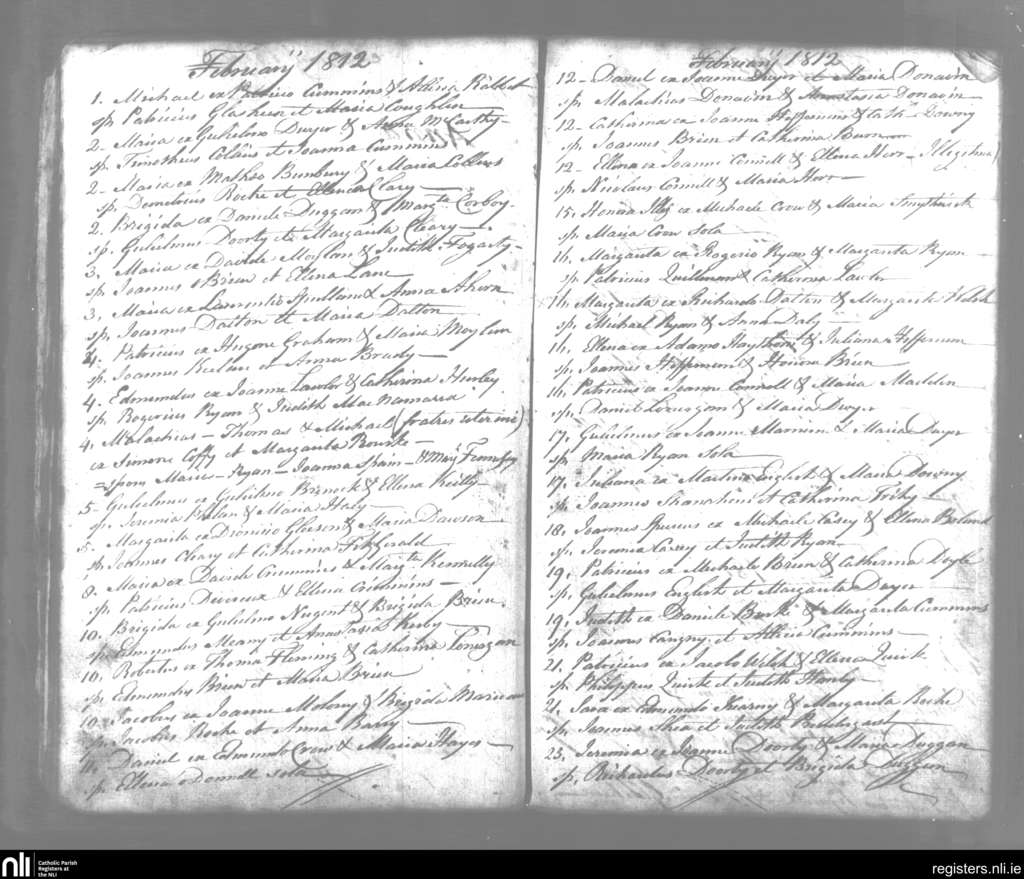 February 1812
1. Michael ex Patricio Cummins & Alicia Rabbet
sp. Patricius Glasheen et Maria Coughlin
2. Maria ex Gulielmo Dwyer & Anna McCarthy
sp. Timotheus Colans et Joanna Cummins
2. Maria ex Matheo Bunbury & Maria Collins
sp. Demetrius Roche et Ellena Clary
2. Brigida ex Daniele Duggan & Margta Corboy
sp. Gulielmus Doorly et Margarita Cleary
3. Maria ex Davide Moylan & Judith Fogarty
sp. Joannes Brien et Ellena Lane
3. Maria ex Laurentio Spullane & Anna Ahern
sp. Joannes Dalton et Maria Dalton
4. Patricius ex Hugone Graham & Maria Moylan
sp. Joannes Keelan et Anna Brady
4. Edmundus ex Joanne Lawlor & Catherina Hurley
sp. Rogerius Ryan & Judith MacNamarra
4. Malachias – Thomas & Michael (fratres uterini)
ex Simone Coffy et Margarita Rourke
spon Maria – Ryan – Joanna Spain – & Mary
5. Gulielmus ex Gulielmo & Ellena Reilly
sp. Jeremia & Maria Haly
5. Margarita ex Dionisio Gleeson & Maria Dawson
sp. Joannes Cleary et Catherina FitzGerald
8. Maria ex Davide Cummins & Margta Kennelly
sp. Patricius Devereux & Ellena Cummins
10. Brigida ex Gulielmo Nugent & Brigida Brien
sp. Edmundus Meany et Anastasia Kirby
10. Robertus ex Thoma Fleming & Catherina Lonegan
sp. Edmundus Brien et Maria Brien
10. Jacobus ex Joanne Molony & Brigida
sp. Jacobus Roche et Anna Barry
11. Daniel ex Edmundo Crow & Maria Hayes
sp. Ellena oDonnell sola
February 1812
12. Daniel ex Joanne Dwyer et Maria Donavin
sp. Malachias Donavin & Anastasia Donavin
12. Catherina ex Joanne Heffernan & Cath Downy
sp. Joannes Brien et Catherina Burn
12. Ellena ex Joanne Connell & Ellena Herr – Illegitima
sp. Nicolaus Connell & Maria Herr
15. Honora Illeg ex Michaele Crow & Maria Smythwick
sp. Maria Crow Sola
16. Margarita ex Rogerio Ryan & Margarita Ryan
sp. Patricius Quillinan & Catherina Lawler
16. Margarita ex Richardo Dalton & Margarita Welsh
sp. Michael Ryan & Anna Daly
16. Ellena ex Adamo Haystrom & Juliana Heffernan
sp. Joannes Heffernan & Honora Brien
16. Patricius ex Joanne Connell & Maria Madden
sp. Daniel Lonergan & Maria Dwyer
17. Gulielmus ex Joanne & Maria Dwyer
sp. Maria Ryan Sola
17. Juliana ex Martino English & Maria Downy
sp. Joannes Shanahan et Catherina Fahy
18. Joannes Spurius ex Michaele Casey & Ellena Boland
sp. Jeremia Casey et Judith Ryan
19. Patricius ex Michaele Brien & Catherina Doyle
sp. Gulielmus English et Margarita Dwyer
19. Judith ex Daniele Burke & Margarita Cummins
sp. Joannes et Alicia Cummins
21. Patricius ex Jacobo Welsh & Ellena Quirk
sp. Philippus Quirk et Judith Hanly
21. Sara ex Edmundo Kearny & Margarita Roche
sp. Joannes Shea et Judith
23. Jeremia ex Joanne Doorly & Maria Duggan
sp. Richardus Doorly et Brigida Duggan
nli
Catholic Parish
Registers at
the NLI
registers.nli.ie